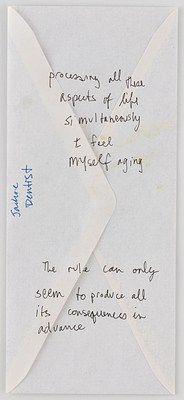 processing all these
aspects of life
simultaneously
I feel
myself aging
Dentist
The rule can only
seem to produce all
its consequences in
advance